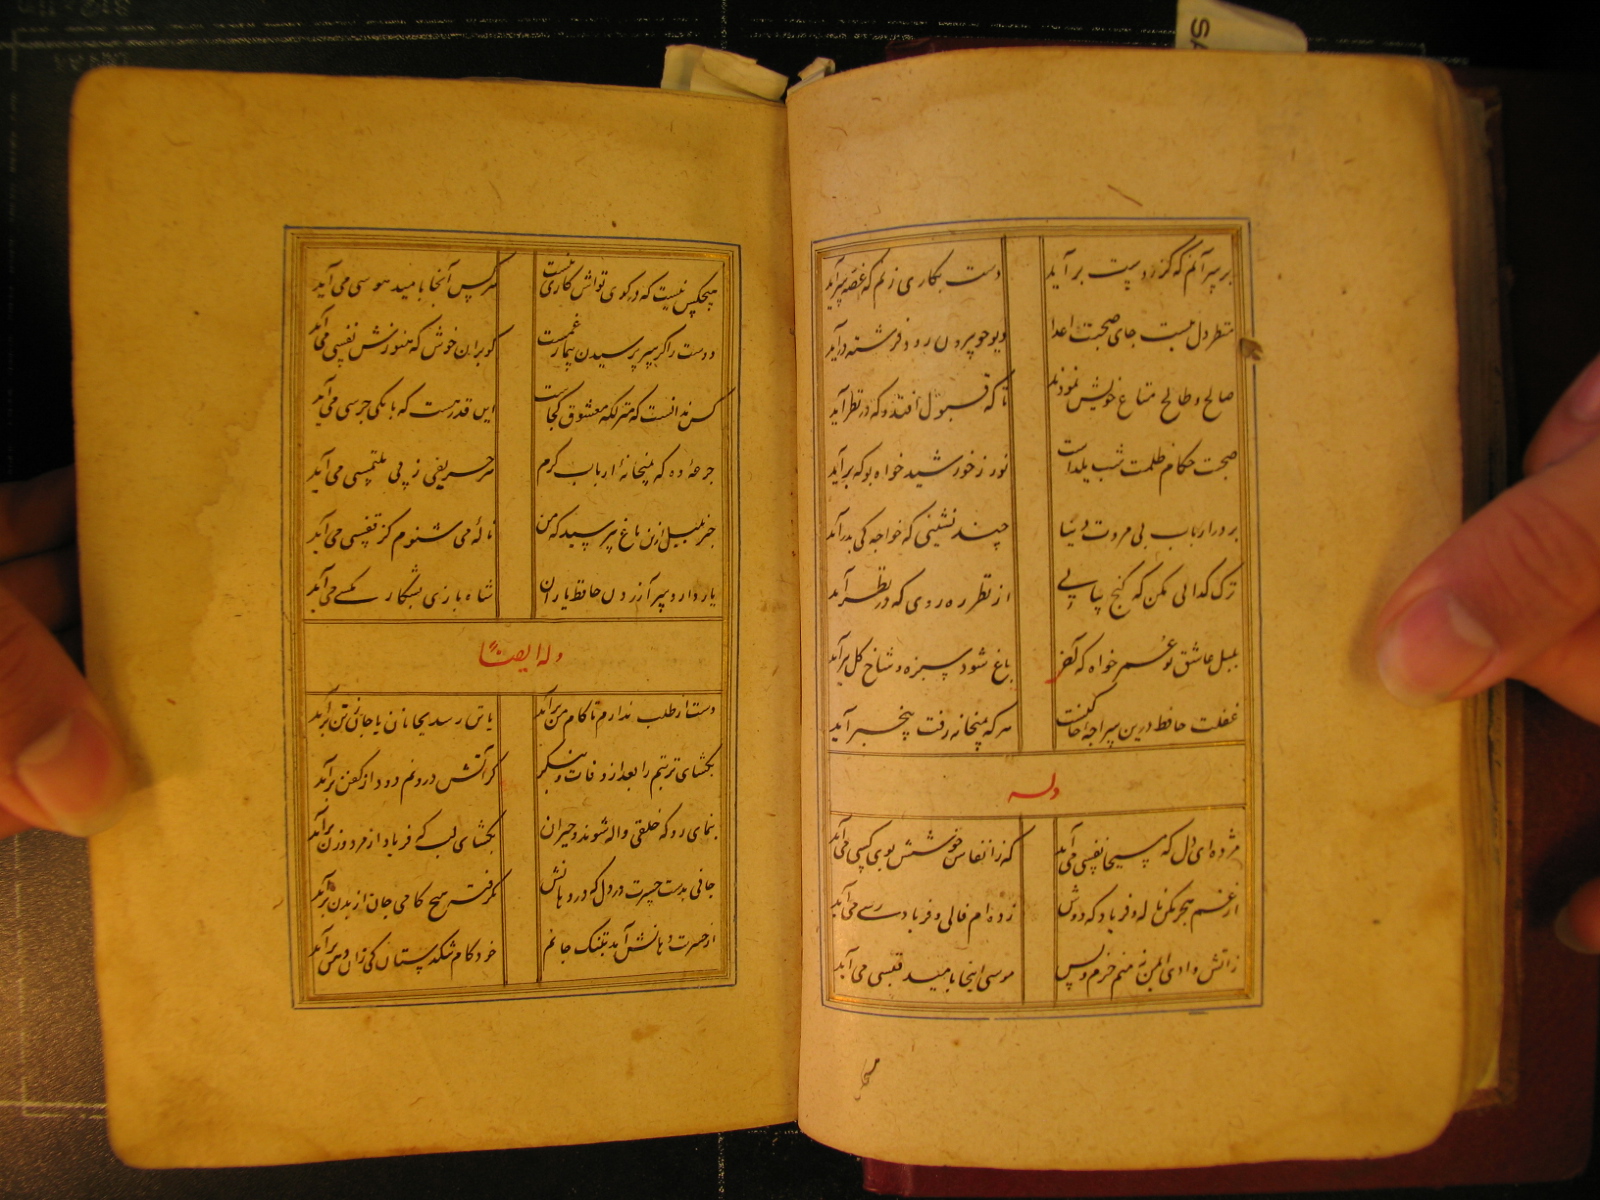 بر سر آنم که گر ز دست برآید
دست بکاری زنم که غصه سر آید
منظر دل نیست جای صحبت اعدا
دیو چو بیرون رود فرشته درآید
صالح و طالح متاع خویش نمودند
تا که قبول افتد و که در نظر آید
صحبت حکام ظلمت شب یلداست
نور ز خورشید خواه بو که برآید
بر در ارباب بی مروت دنیا
چند نشینی که خواجه کی بدر آید
ترک گدایی مکن که گنج بیابی
از نظر ره روی که در نظر آید
بلبل عاشق تو عمر خواه که آخر
باغ شود سبز و شاخ گل ببر آید
غفلت حافظ درین سراچه عجب نیست
هر که بمیخانه رفت بیخبر آید
وله
مژده ای دل که مسیحا نفسی می آید
که ز انفاس خوشش بوی کسی می آید
از غم هجر مکن ناله و فریاد که دوش
زده ام فالی و فریاد رسی می آید
ز آتش وادی ایمن نه منم خرم و بس
موسی اینجا بامید قبسی می آید
هیچکس نیست که در کوی تواش کاری نیست
هر کس آنجا بامید هوسی می آید
دوست را گر سر پرسیدن بیمار غمست
گو بران خوش که هنوزش نفسی می آید
کس ندانست که منزلگه معشوق کجاست
این قدر هست که بانگ جرسی می آید
جرعهٔ ده که بمیخانهٔ ارباب کرم
هر حریفی ز پی ملتمسی می آید
خبر بلبل ازین باغ بپرسید که من
نالهٔ می شنوم کز قفسی می آید
یار دارد سر آزردن حافظ یاران
شاه بازی بشکار مگسی می آید
وله ایضاً
دست از طلب ندارم تا کام من برآید
یا تن رسد بجانان یا جان ز تن برآید
بگشای تربتم را بعد از وفات و بنگر
کز آتش درونم دود از کفن برآید
بنمای رو که خلقی واله شوند و حیران
بگشای لب که فریاد از مرد و زن برآید
جانی بدست حسرت در دل که در وهانش
نگرفته هیچ کامی جان از بدن برآید
از حسرت دهانش آمد بتنگ جانم
خود کام تنگدستان کی زان دهن برآید